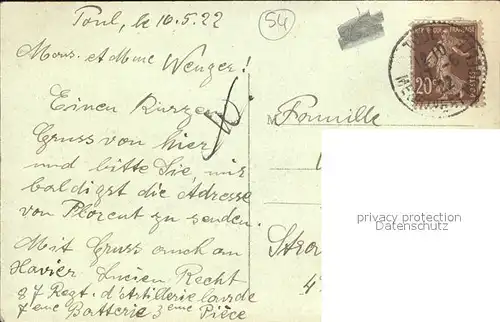 Toul, le 10.5.22
54
Mons. et Mme Wenger!
Einen kurzen
Gruss von hier
und bitte Sie, mir
baldigst die Adresse
von Florent zu senden.
Mit Gruss auch an
Xavier Lucien Recht
87 Regt. d'Artillerie lourde
7eme Batterie 3eme Pièce
M Famille
privacy protection
Datenschutz
20c
POSTES